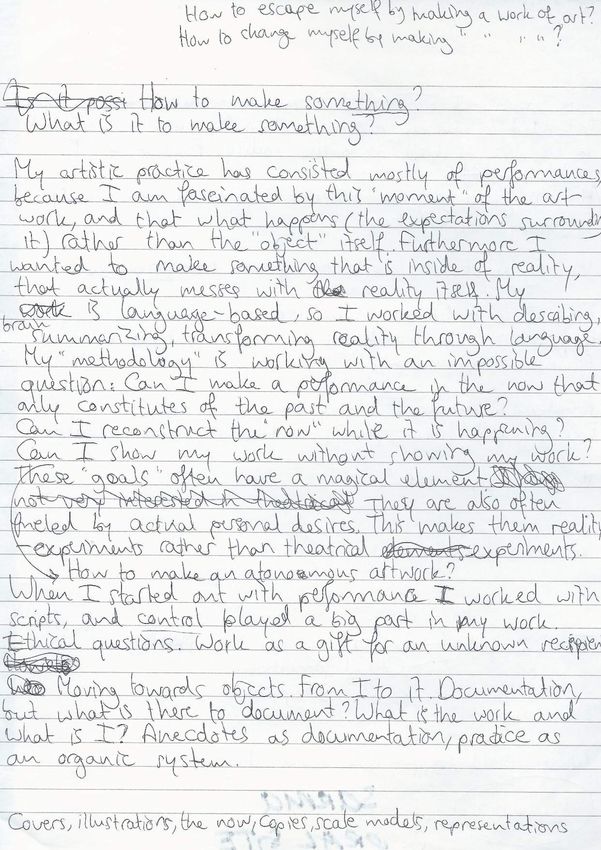 How to escape myself by making a work of art?
How to change myself by making " " " " ?
Is it possi How to make something?
What is it to make something?
My artistic practice has consisted mostly of performances,
because I am fascinated by this "moment" of the art
work, and that what happens (the expectations surrounding
it) rather than the "object" itself. Furthermore I
wanted to make something that is inside of reality,
that actually messes with the reality itself. My
work is language-based, so I worked with describing,
brain
summarizing, transforming reality through language.
My "methodology" is working with an impossible
question: Can I make a performance in the now that
only constitutes of the past and the future?
Can I reconstruct the "now" while it is happening?
Can I show my work without showing my work?
These "goals" often have a magical element
not very interested in theatrical They are also often
fueled by actual personal desires. This makes them reality
-experiments rather than theatrical elements experiments.
How to make an atonoomous artwork?
When I started out with performance I worked with
scripts, and control played a big part in my work.
Ethical questions. Work as a gift for an unknown recipien
Moving towards objects. From I to it. Documentation,
but what is there to document? What is the work and
what is I? Anecdotes as documentation, practice as
an organic system.
Covers, illustrations, the now, copies, scale models, representations